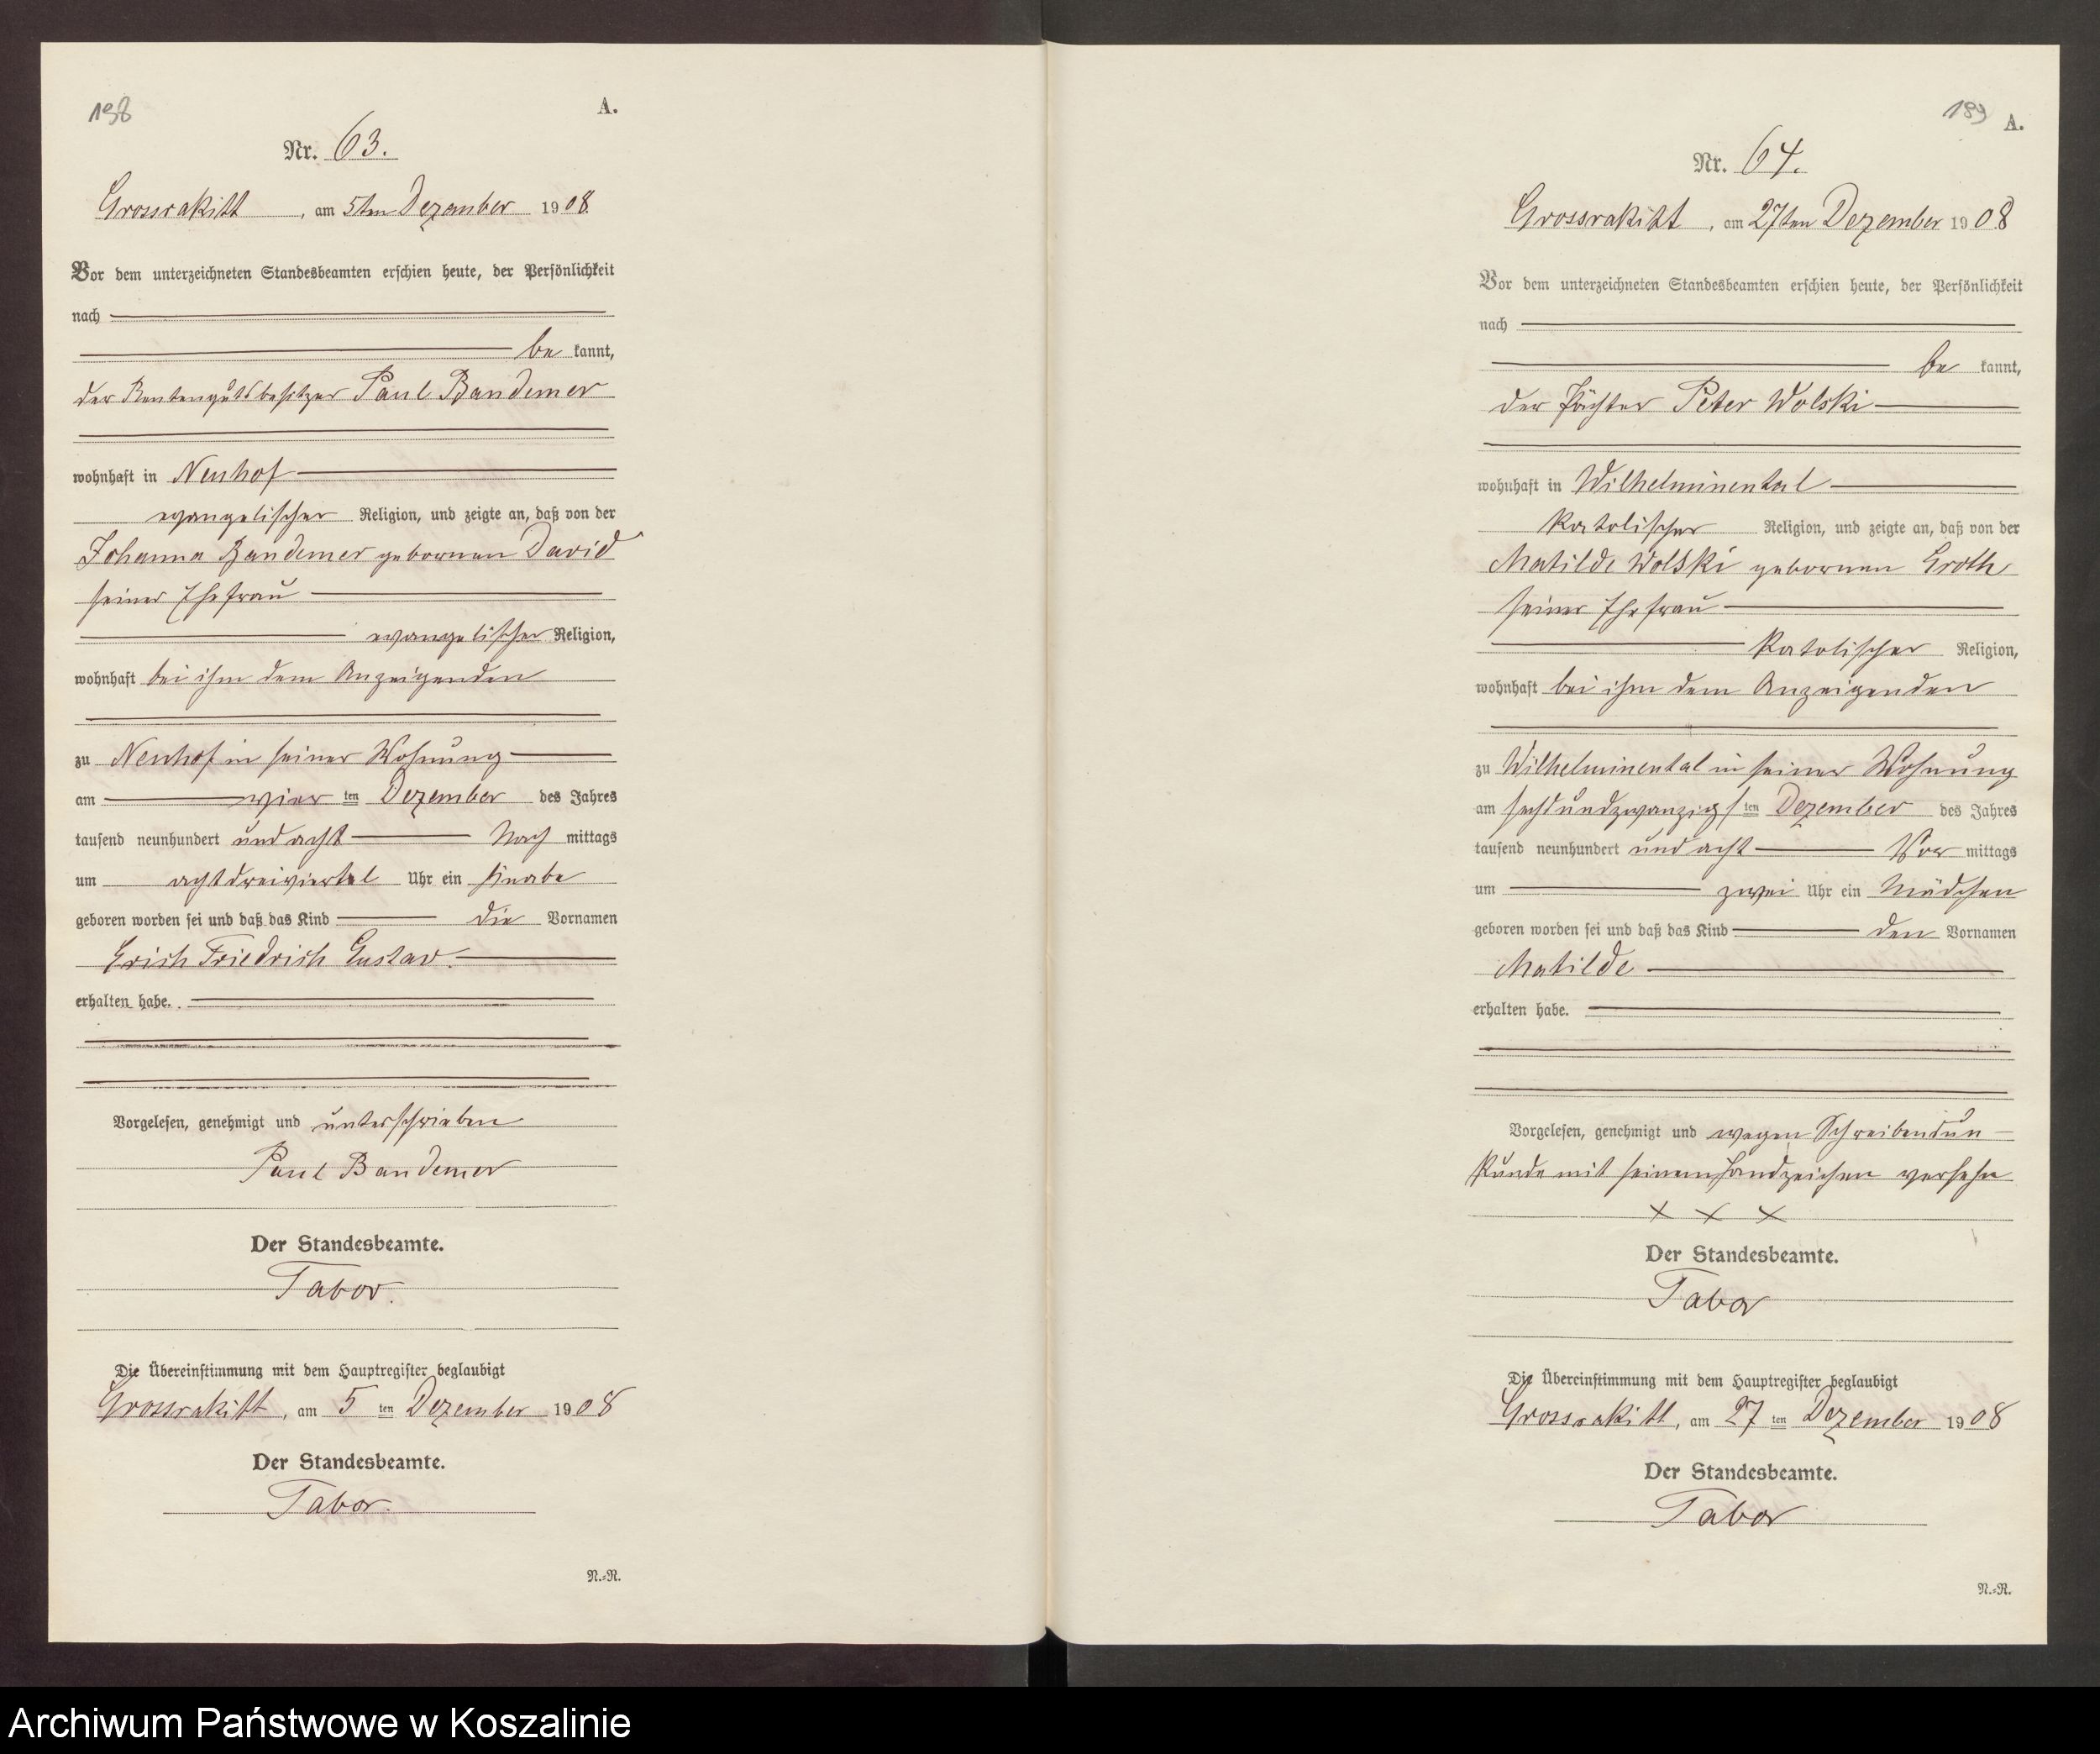 198
A.
Nr. 63.
Grossrakitt, am 5ten Dezember 1908.
Vor dem unterzeichneten Standesbeamten erschien heute, der Persönlichkeit
nach
be kannt,
der Rentengutsbesitzer Paul Bandemer
wohnhaft in Neuhof
evangelischer Religion, und zeigte an, daß von der
Johanna Bandemer gebornen David
seiner Ehefrau
evangelischer Religion,
wohnhaft bei ihm dem Anzeigenden
zu Neuhof in seiner Wohnung
am vier ten Dezember des Jahres
tausend neunhundert und acht Nach mittags
um acht dreiviertel Uhr ein Knabe
geboren worden sei und daß das Kind die Vornamen
Erich Friedrich Gustav.
erhalten habe.
Vorgelesen, genehmigt und unterschrieben
Paul Bandemer
Der Standesbeamte.
Tabor.
Die Übereinstimmung mit dem Hauptregister beglaubigt
Grossrakitt, am 5 ten Dezember 1908
Der Standesbeamte.
Tabor.
N.=R.
199
A.
Nr. 64.
Grossrakitt, am 27ten Dezember 1908
Vor dem unterzeichneten Standesbeamten erschien heute, der Persönlichkeit
nach
be kannt,
der Pächter Peter Wolski
wohnhaft in Wilhelminental
katolischer Religion, und zeigte an, daß von der
Matilde Wolski gebornen Groth
seiner Ehefrau
katolischer Religion,
wohnhaft bei ihm dem Anzeigenden
zu Wilhelminental in seiner Wohnung
am sechsundzwanzigs ten Dezember des Jahres
tausend neunhundert und acht Vor mittags
um zwei Uhr ein Mädchen
geboren worden sei und daß das Kind den Vornamen
Matilde
erhalten habe.
Vorgelesen, genehmigt und wegen Schreibensun-
kunde mit seinem Handzeichen versehn
x x x
Der Standesbeamte.
Tabor
Die Übereinstimmung mit dem Hauptregister beglaubigt
Grossrakitt, am 27 ten Dezember 1908
Der Standesbeamte.
Tabor
N.=R.
Archiwum Państwowe w Koszalinie